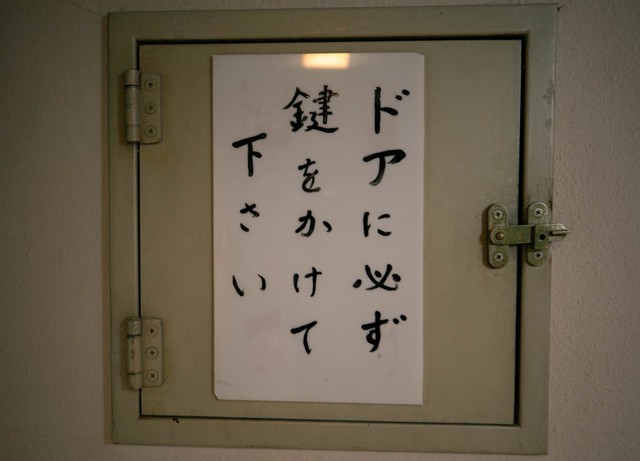 ドアに必ず
鍵をかけて
下さい